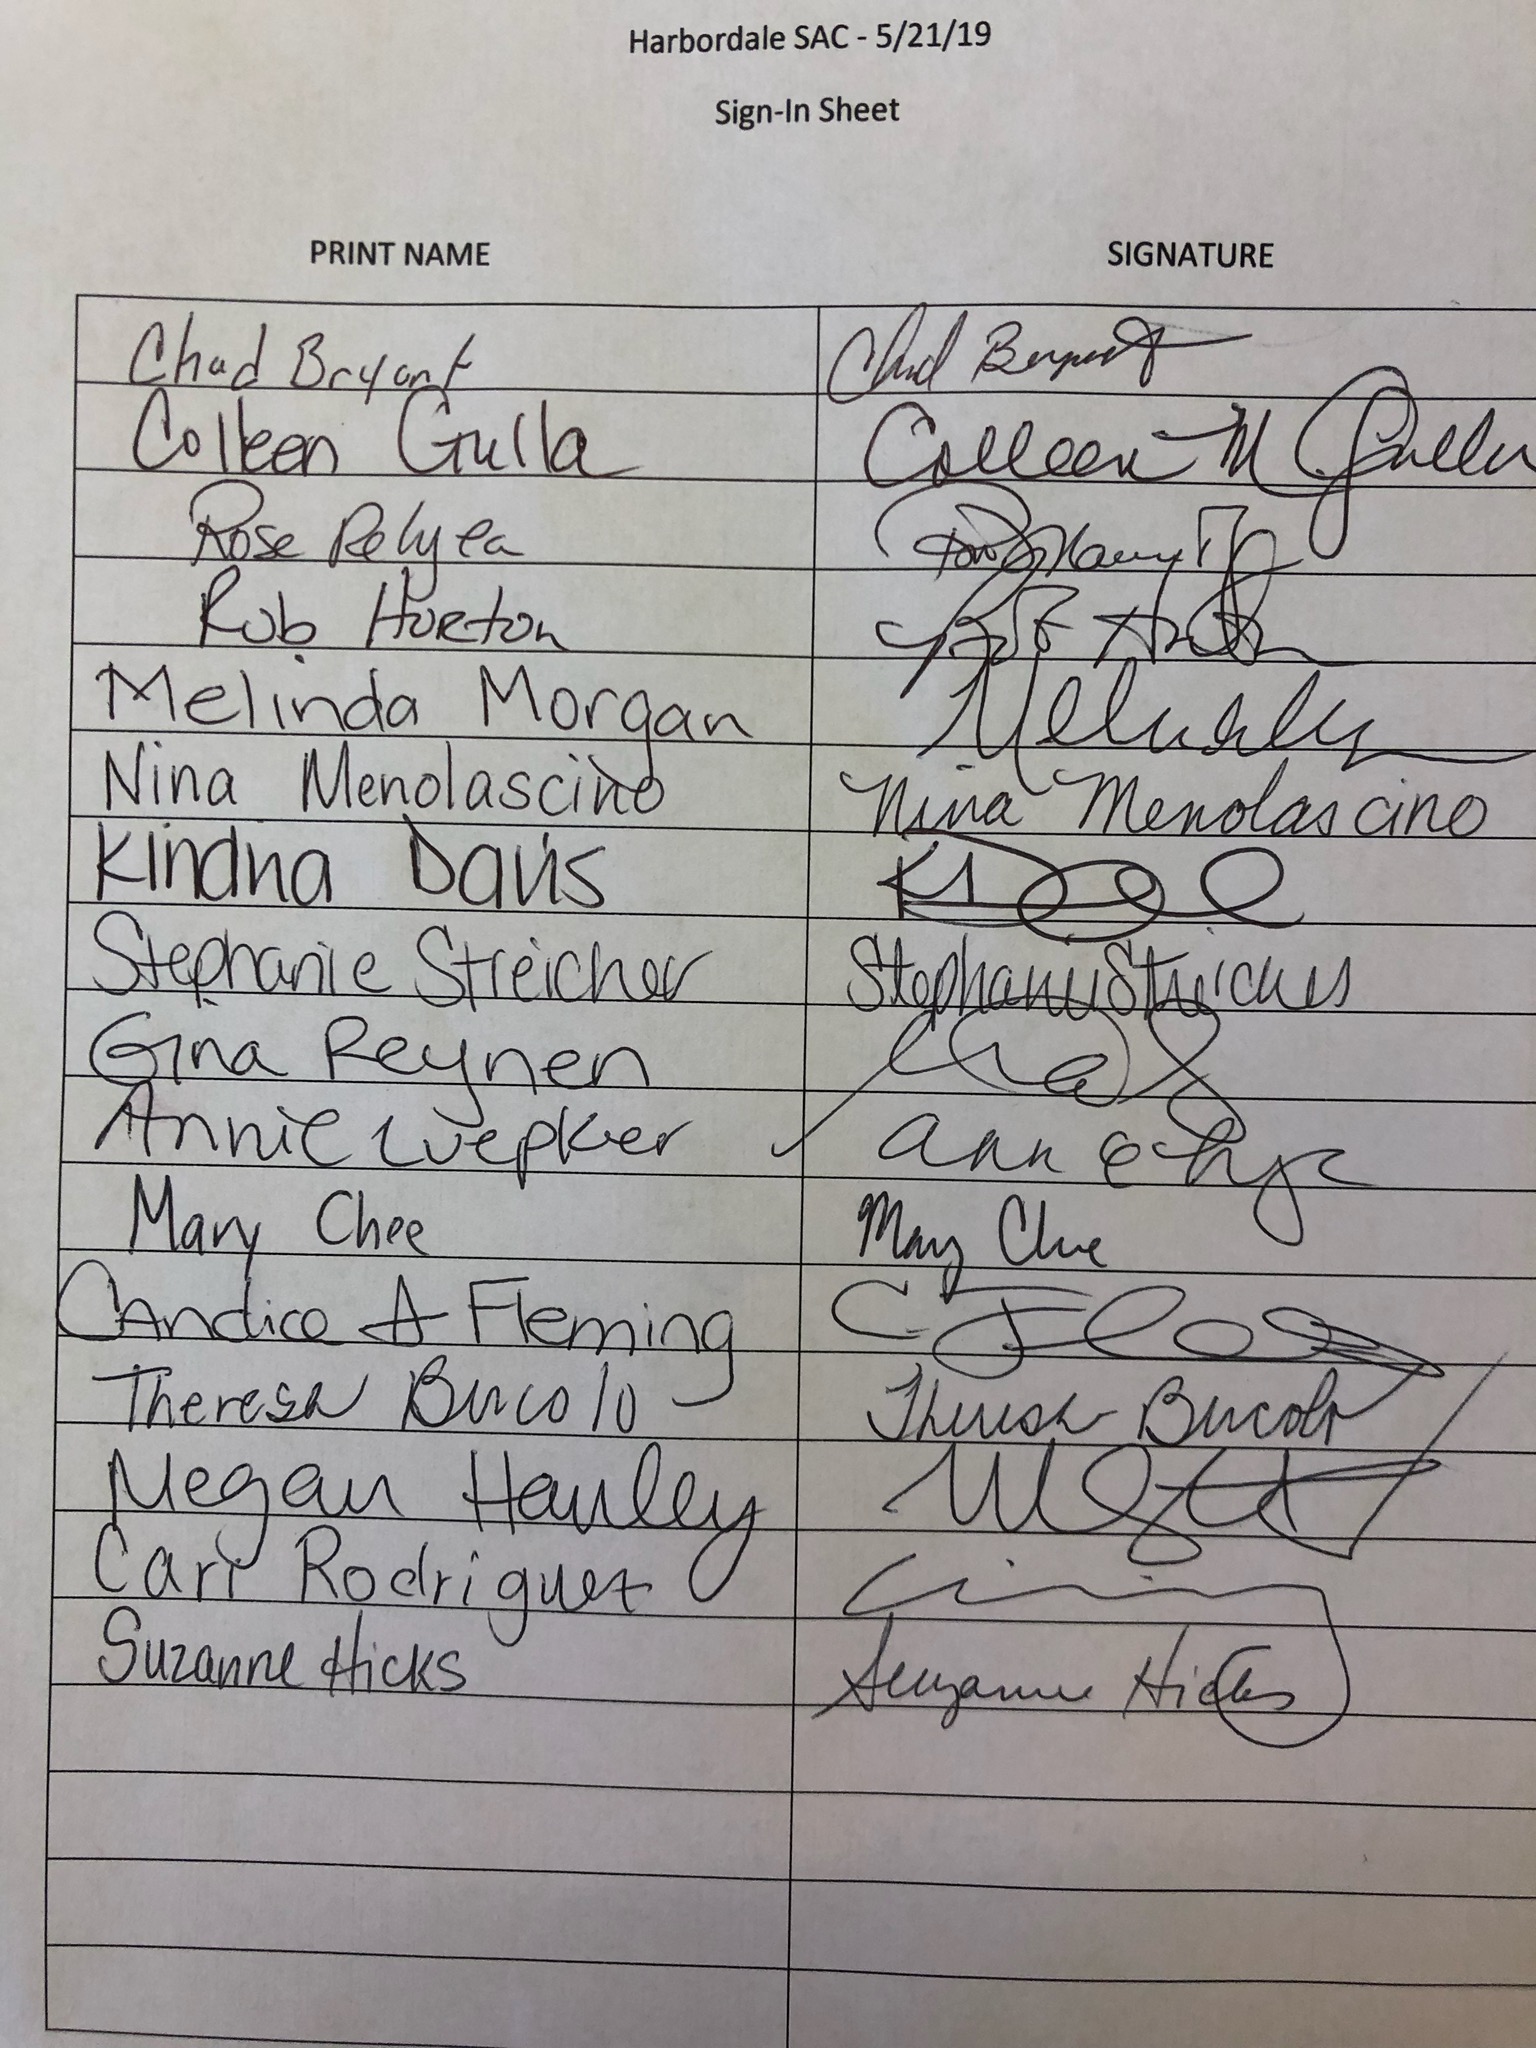 Harbordale SAC - 5/21/19
Sign-In Sheet
PRINT NAME SIGNATURE
Chad Bryant Chad Bryant
Colleen Gulla Colleen M Gulla
Rose Relyea
Rob Horton
Melinda Morgan
Nina Menolascino Nina Menolascino
Kindna Davis
Stephanie Streicher Stephanie Streicher
Gina Reynen
Annie Luepker
Mary Chee Mary Chee
Candice A Fleming
Theresa Bucolo Theresa Bucolo
Megan Hanley
Cari Rodriguez
Suzanne Hicks Suzanne Hicks